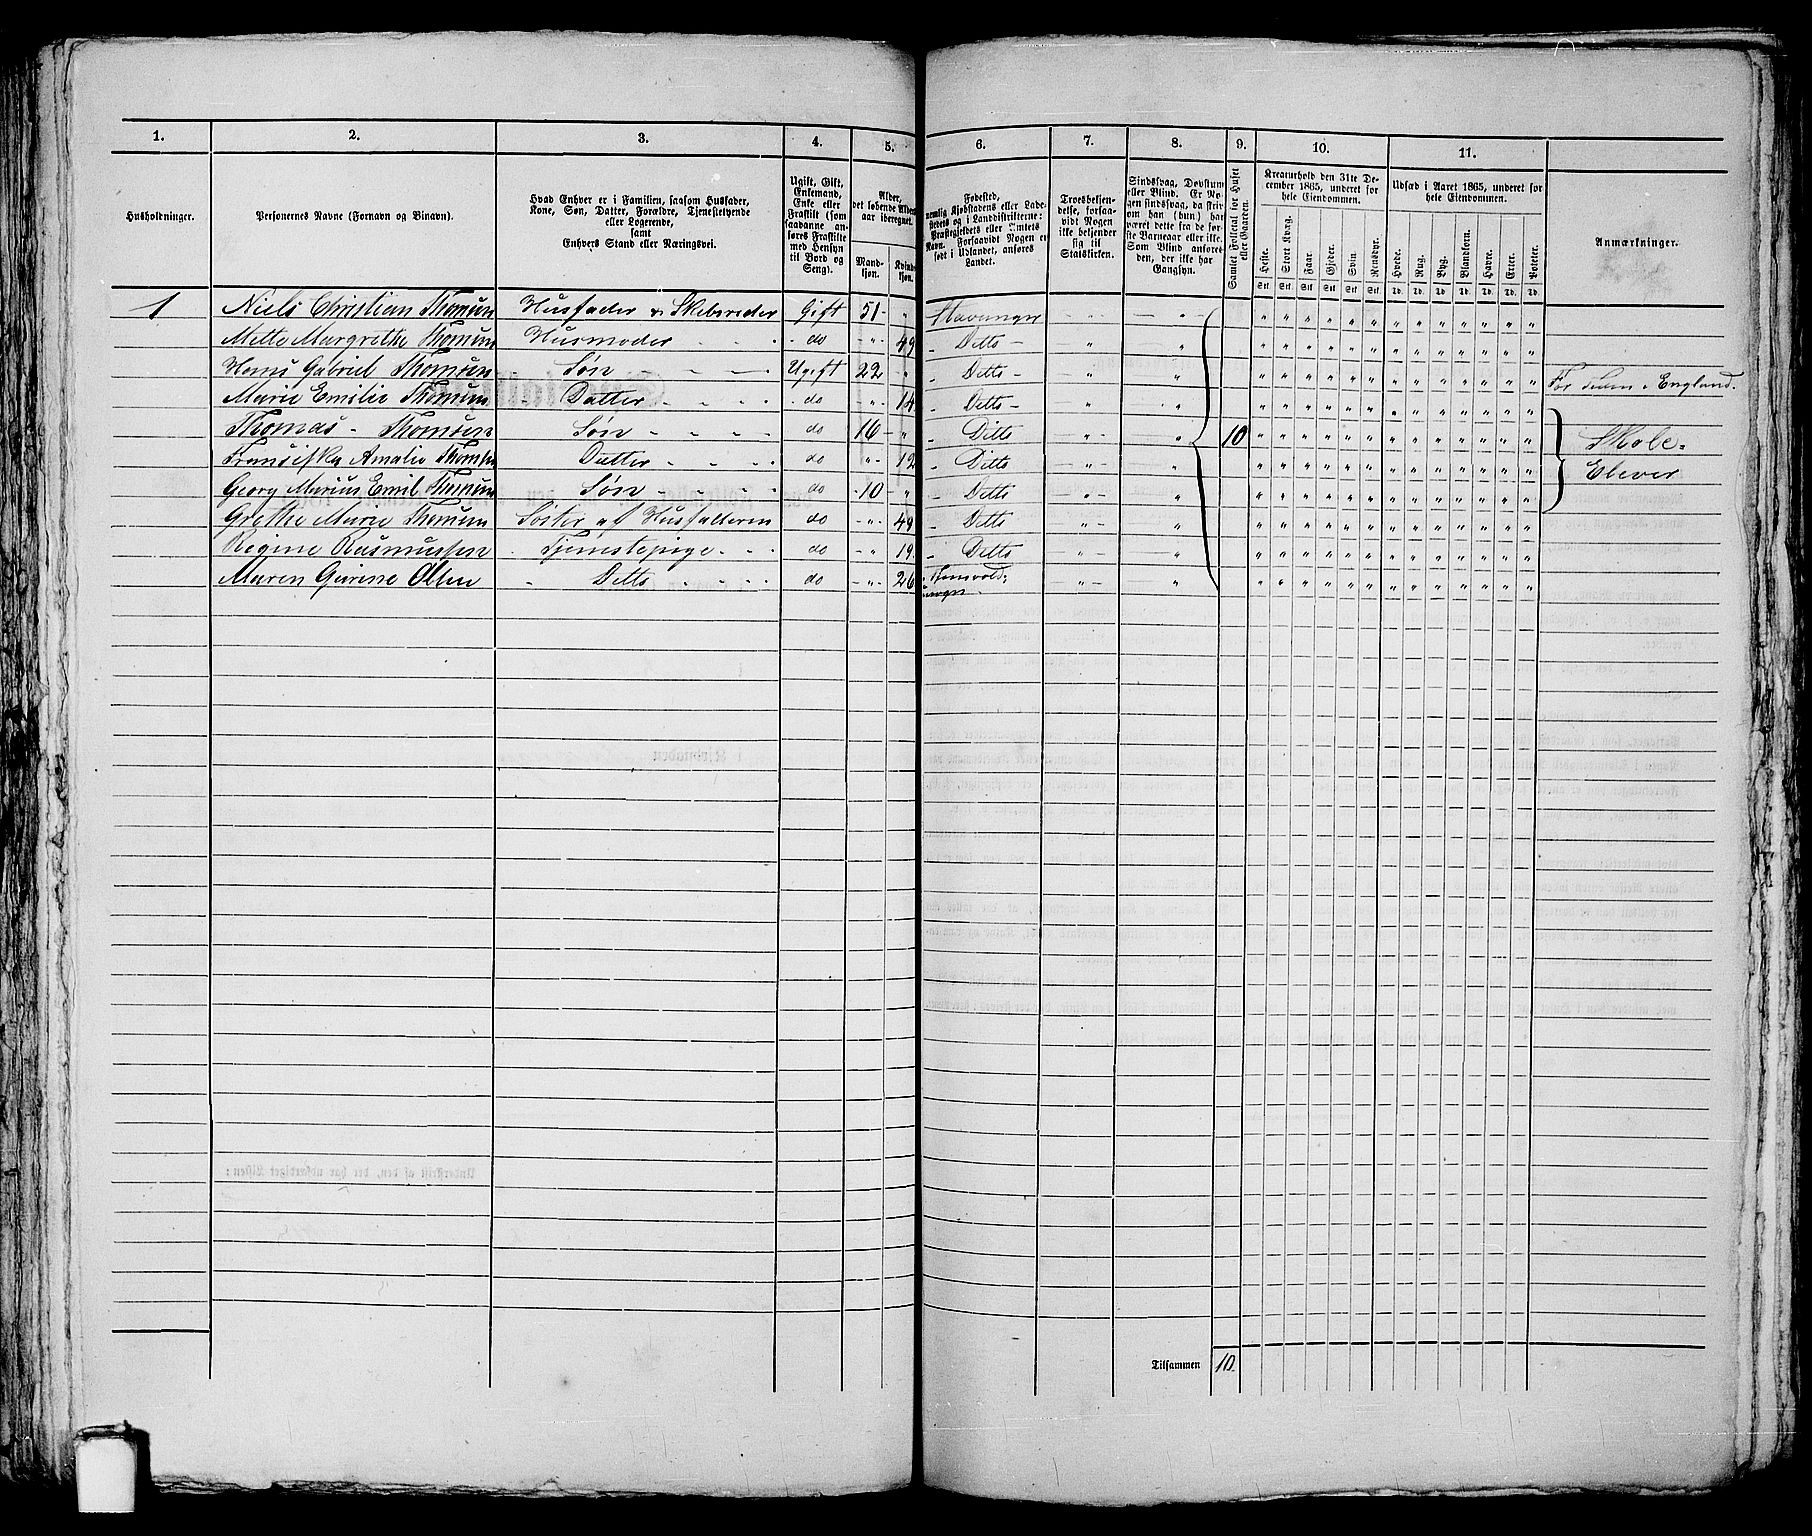 1. 2. 3. 4. 5. 6. 7. 8. 9. 10. 11.
Husholdninger.
Personernes Navne (Fornavn og Binavn).
Hvad Enhver er i Familien, saasom Husfader,
Kone, Søn, Datter, Forældre, Tjenestetyende
eller Logerende,
samt
Enhvers Stand eller Næringsvei.
Ugift, Gift,
Enkemand,
Enke eller
Fraskilt (som
saadanne anføres Fraskilte
med Hensyn
til Bord og
Seng).
Alder,
det løbende Alders-
aar iberegnet.
Mandkjøn.
Kvindekjøn.
Fødested,
nemlig Kjøbstadens eller Ladestedets
og i Landdistrikterne:
Præstegjeldets eller Amtets
Navn. Forsaavidt Nogen er
født i Udlandet, anføres
Landet.
Troesbekjendelse,
forsaavidt Nogen
ikke bekjender
sig til
Statskirken.
Sindssvag, Døvstum
eller Blind. Er Nogen
sindssvag, da hvorvidt
han (hun) har
været dette fra de første
Barneaar eller ikke.
Som Blind anføres
den, der ikke har
Gangsyn.
Samlet Folketal for Huset
eller Gaarden.
Kreaturhold den 31te December
1865, underet for
hele Eiendommen.
Heste. Stort Kvæg. Faar. Gjeder. Svin. Rensdyr.
Udsæd i Aaret 1865, underet for
hele Eiendommen.
Hvede. Rug. Byg. Blandkorn. Havre. Erter. Poteter.
Stk. Stk. Stk. Stk. Stk. Stk. Td. Td. Td. Td. Td. Td. Td.
Anmærkninger.
1 Niels Christian Thomsen Husfader & Skibsreder Gift 51 " Stavanger
Mette Margrethe Thomsen Husmoder do " 49 Ditto
Hans Gabriel Thomsen Søn Ugift 22 " Ditto For Tiden i England.
Marie Emilie Thomsen Datter do " 14 Ditto
Thomas Thomsen Søn do 16 " Ditto 10 Skole-
Fransiska Amalie Thomsen Datter do " 12 Ditto Elever
Georg Marius Emil Thomsen Søn do 10 " Ditto
Grethe Marie Thomsen Søster af Husfatteren do " 49 Ditto
Regine Rasmussen Tjenestepige do " 19 Ditto
Maren Gurine Olsen Ditto do " 26
Tilsammen 10